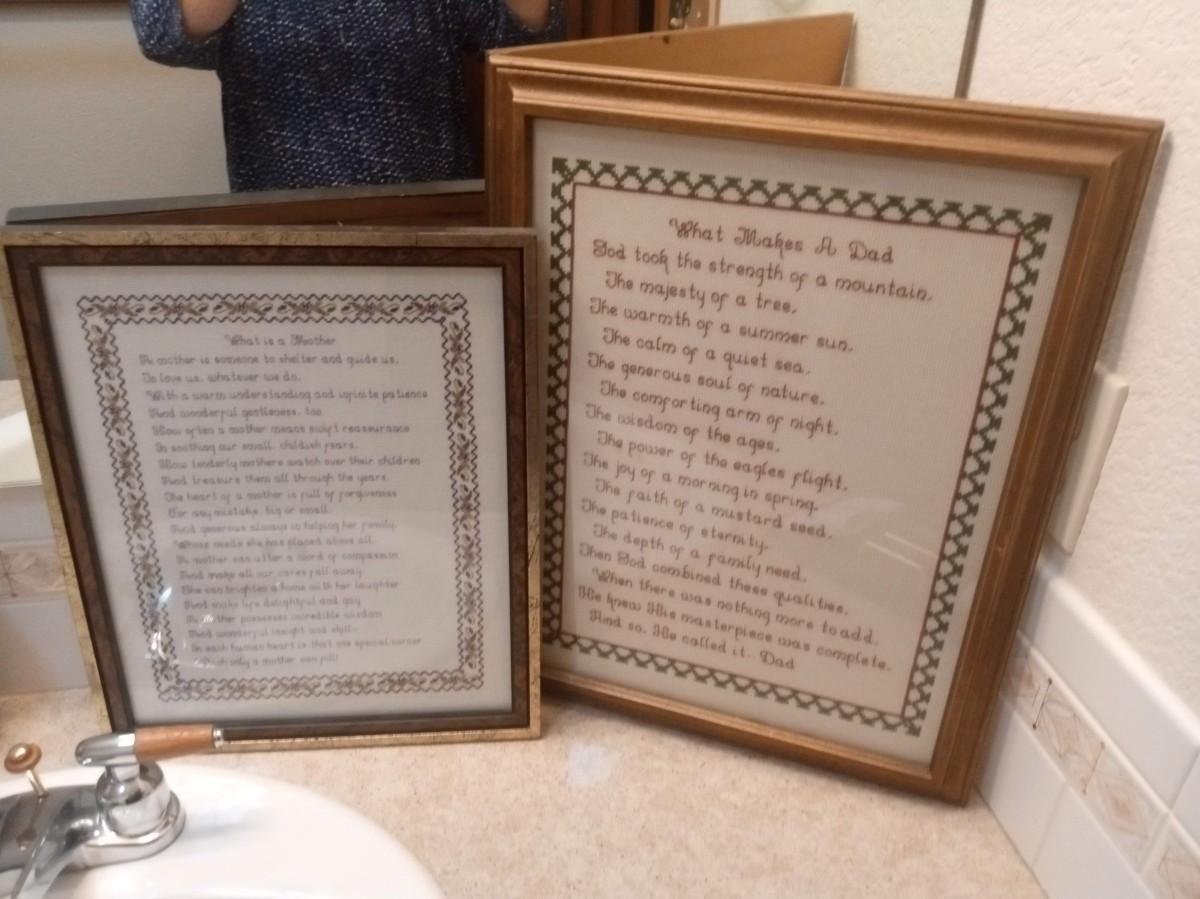 What is a Mother
A mother is someone to shelter and guide us,
To love us, whatever we do,
With a warm understanding and infinite patience
And wonderful gentleness, too.
How often a mother means swift reassurance
In soothing our small, childish fears,
How tenderly mothers watch over their children
And treasure them all through the years.
The heart of a mother is full of forgiveness
For any mistake, big or small,
And generous always in helping her family,
Whose needs she has placed above all.
A mother can utter a word of compassion
And make all our cares fall away,
She can brighten a home with her laughter
And make life delightful and gay.
A mother possesses incredible wisdom
And wonderful insight and skill-
In each human heart is that one special corner
Which only a mother can fill!
What Makes A Dad
God took the strength of a mountain,
The majesty of a tree,
The warmth of a summer sun,
The calm of a quiet sea,
The generous soul of nature,
The comforting arm of night,
The wisdom of the ages,
The power of the eagles flight,
The joy of a morning in spring,
The faith of a mustard seed,
The patience of eternity,
The depth of a family need,
Then God combined these qualities,
When there was nothing more to add,
He knew His masterpiece was complete,
And so, He called it.. Dad